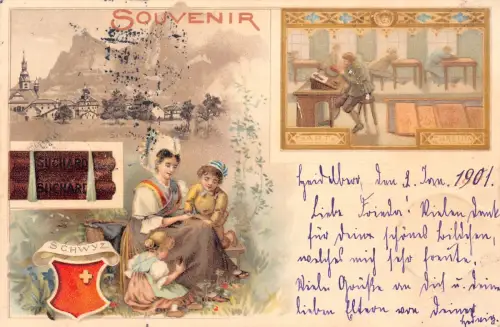 SOUVENIR
SUCHARD
SUCHARD
SCHWYZ
Heidelberg, den 2. Jan. 1901.
Liebe Frieda! Vielen Dank
für deine schönes Bildchen,
welches mich sehr freute.
Viele Grüße an Dich u. deine
lieben Eltern von Deiner
Hedwig.